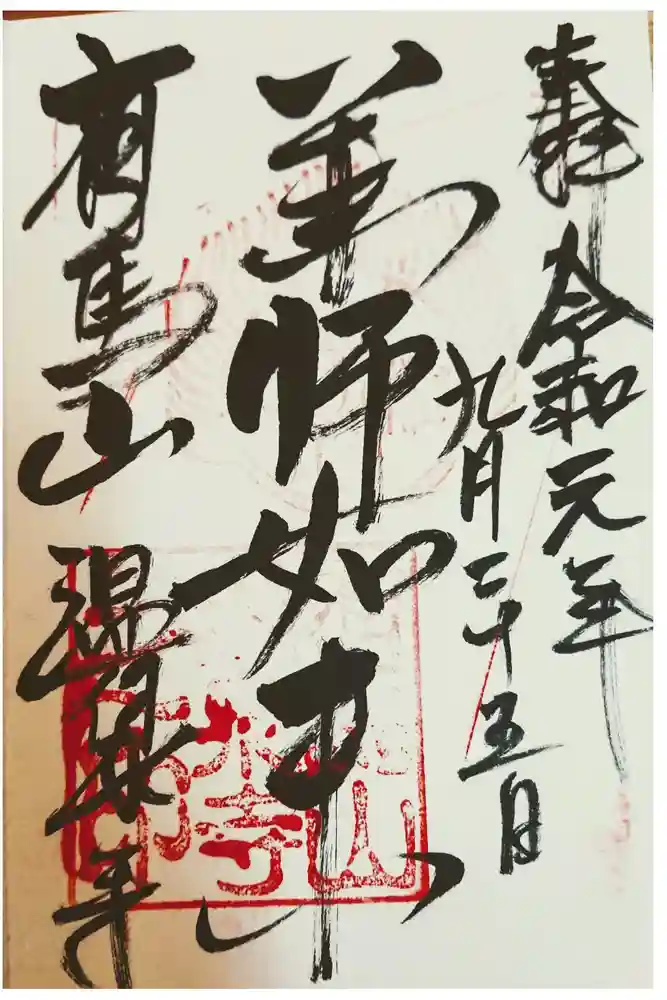 奉拝 令和元年
九月二十五日
薬師如来
有馬山 温泉寺